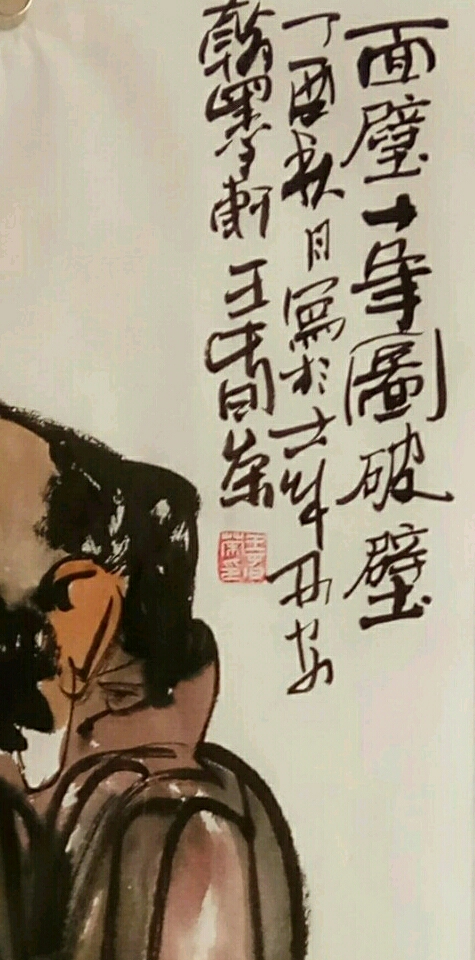 面壁十年圖破壁
丁酉秋月寫於古城西安
翰墨軒王春荣
王春荣印